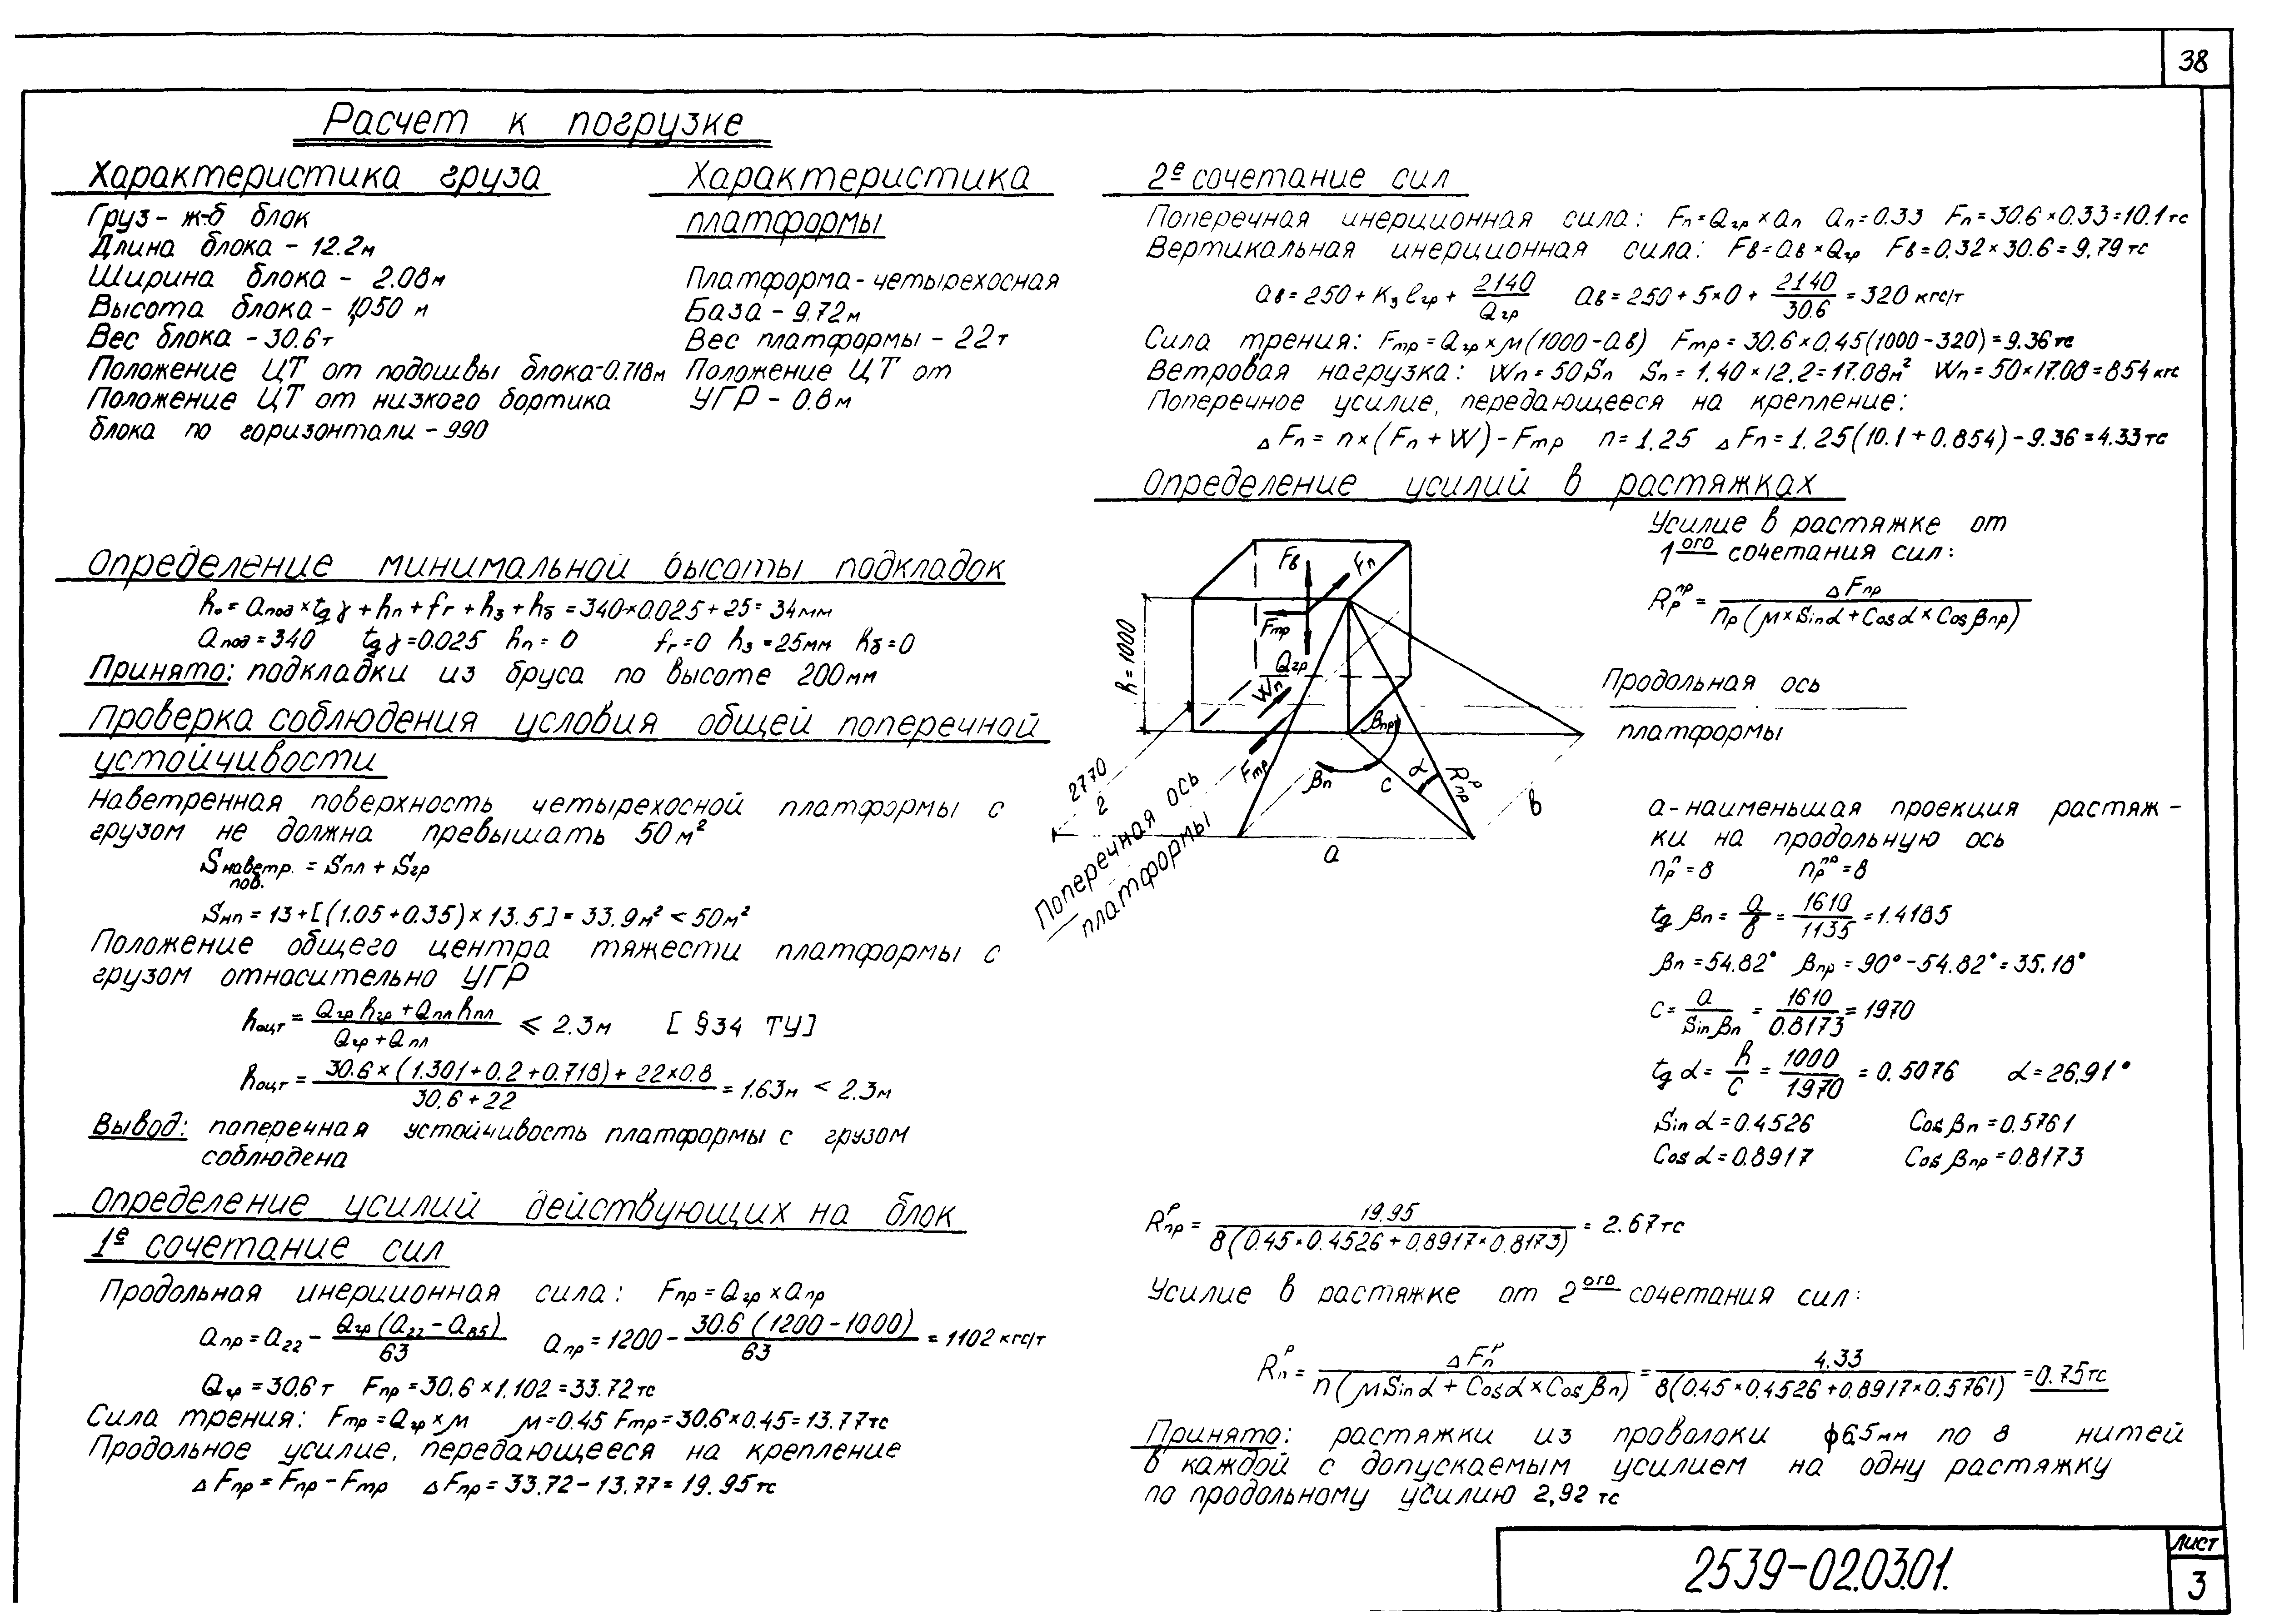 38
Расчет к погрузке
Характеристика груза
Груз - ж-б блок
Длина блока - 12.2м
Ширина блока - 2.08м
Высота блока - 1,050 м
Вес блока - 30.6т
Положение ЦТ от подошвы блока-0.718м
Положение ЦТ от низкого бортика
блока по горизонтали - 990
Характеристика
платформы
Платформа - четырехосная
База - 9.72м
Вес платформы - 22т
Положение ЦТ от
УГР - 0.8м
Определение минимальной высоты подкладок
hо = aпод × tg γ + hп + fг + hз + hб = 340×0.025 + 25 = 34мм
aпод = 340 tg γ = 0.025 hп = 0 fг = 0 hз = 25мм hб = 0
Принято: подкладки из бруса по высоте 200мм
Проверка соблюдения условия общей поперечной
устойчивости
Наветренная поверхность четырехосной платформы с
грузом не должна превышать 50м²
Sнаветр. пов. = Sпл + Sгр
Sнп = 13+[(1.05+0.35)×13.5] = 33.9м² < 50м²
Положение общего центра тяжести платформы с
грузом относительно УГР
hоцт = (Qгр hгр + Qпл hпл) / (Qгр + Qпл) ⩽ 2.3м [§34 ТУ]
hоцт = (30.6×(1.301+0.2+0.718)+22×0.8) / (30.6+22) = 1.63м < 2.3м
Вывод: поперечная устойчивость платформы с грузом
соблюдена
Определение усилий действующих на блок
1е сочетание сил
Продольная инерционная сила: Fпр = Qгр × aпр
aпр = a22 - Qгр (a22 - a85) / 63 aпр = 1200 - 30.6 (1200-1000) / 63 = 1102 кгс/т
Qгр = 30.6т Fпр = 30.6 × 1.102 = 33.72тс
Сила трения: Fтр = Qгр × м м = 0.45 Fтр = 30.6×0.45 = 13.77тс
Продольное усилие, передающееся на крепление
△Fпр = Fпр - Fтр △Fпр = 33.72 - 13.77 = 19.95тс
2е сочетание сил
Поперечная инерционная сила: Fп = Qгр × aп aп = 0.33 Fп = 30.6×0.33 = 10.1тс
Вертикальная инерционная сила: Fв = aв × Qгр Fв = 0.32 × 30.6 = 9.79тс
aв = 250 + Kз ℓгр + 2140 / Qгр aв = 250 + 5×0 + 2140 / 30.6 = 320 кгс/т
Сила трения: Fтр = Qгр × м (1000 - aв) Fтр = 30.6×0.45(1000-320) = 9.36тс
Ветровая нагрузка: Wп = 50 Sп Sп = 1.40×12.2 = 17.08м² Wп = 50×17.08 = 854 кгс
Поперечное усилие, передающееся на крепление:
△Fп = n×(Fп + W) - Fтр n = 1.25 △Fп = 1.25(10.1+0.854) - 9.36 = 4.33тс
Определение усилий в растяжках
Усилие в растяжке от
1ого сочетания сил:
Rрпр = △Fпр / nр(м×Sinα + Cosα × Cosβпр)
Fв
Fп
Fтр
Qгр
Wп
h = 1000
βпр
Fтр
βп
c
α
Rпрр
в
a
2770
2
Поперечная ось
платформы
Продольная ось
платформы
а - наименьшая проекция растяж-
ки на продольную ось
nрп = 8 nрпр = 8
tg βп = a / в = 1610 / 1135 = 1.4185
βп = 54.82° βпр = 90° - 54.82° = 35.18°
c = a / Sin βп = 1610 / 0.8173 = 1970
tg α = h / c = 1000 / 1970 = 0.5076 α = 26.91°
Sin α = 0.4526 Cos βп = 0.5761
Cos α = 0.8917 Cos βпр = 0.8173
Rпрр = 19.95 / 8(0.45×0.4526+0.8917×0.8173) = 2.67тс
Усилие в растяжке от 2ого сочетания сил:
Rпр = △Fпр / n(мSinα + Cosα×Cosβп) = 4.33 / 8(0.45×0.4526+0.8917×0.5761) = 0.75тс
Принято: растяжки из проволоки ϕ6,5мм по 8 нитей
в каждой с допускаемым усилием на одну растяжку
по продольному усилию 2,92 тс
2539-02.03.01.
Лист
3